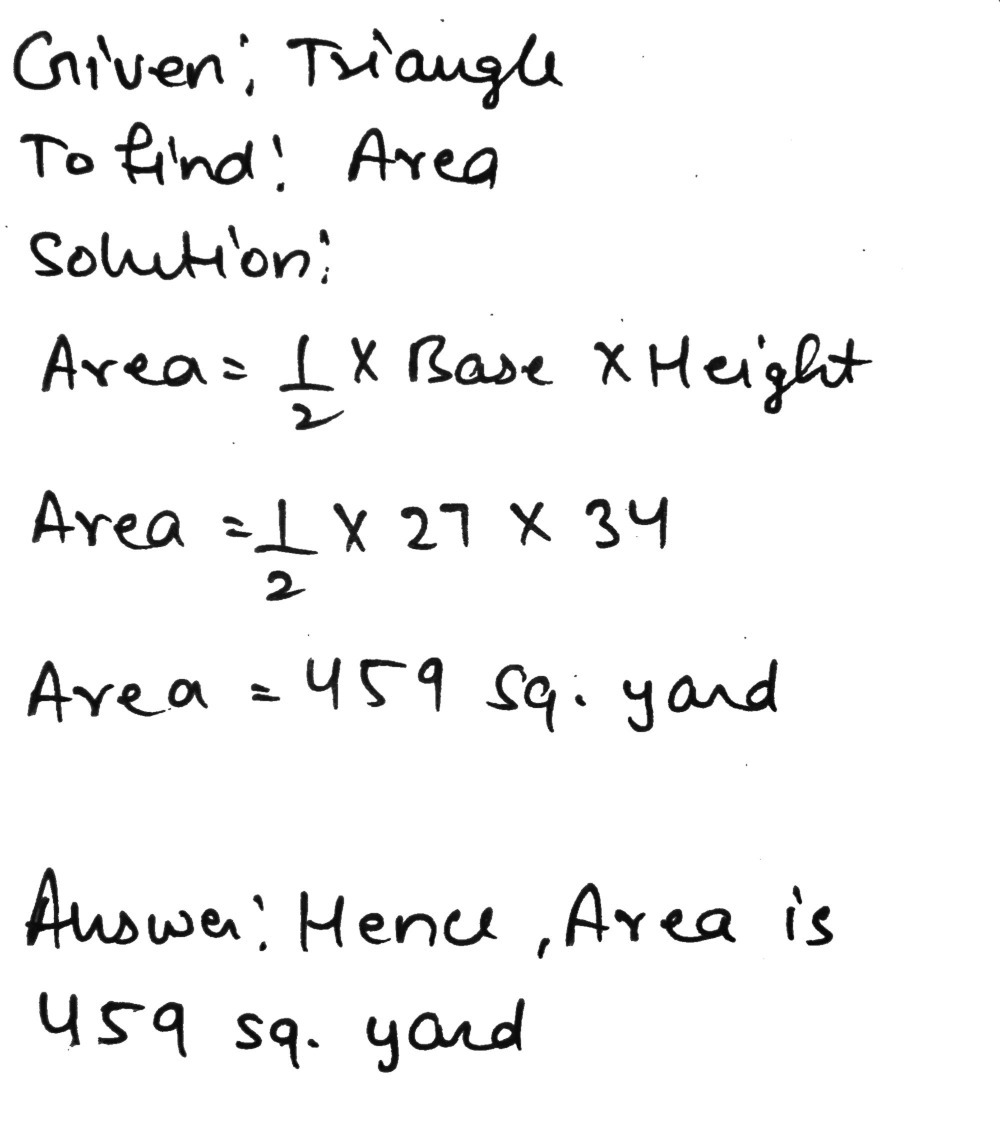 Given: Triangle
To find: Area
Solution:
Area = 1/2 X Base X Height
Area = 1/2 X 27 X 34
Area = 459 sq. yard
Answer: Hence, Area is
459 sq. yard